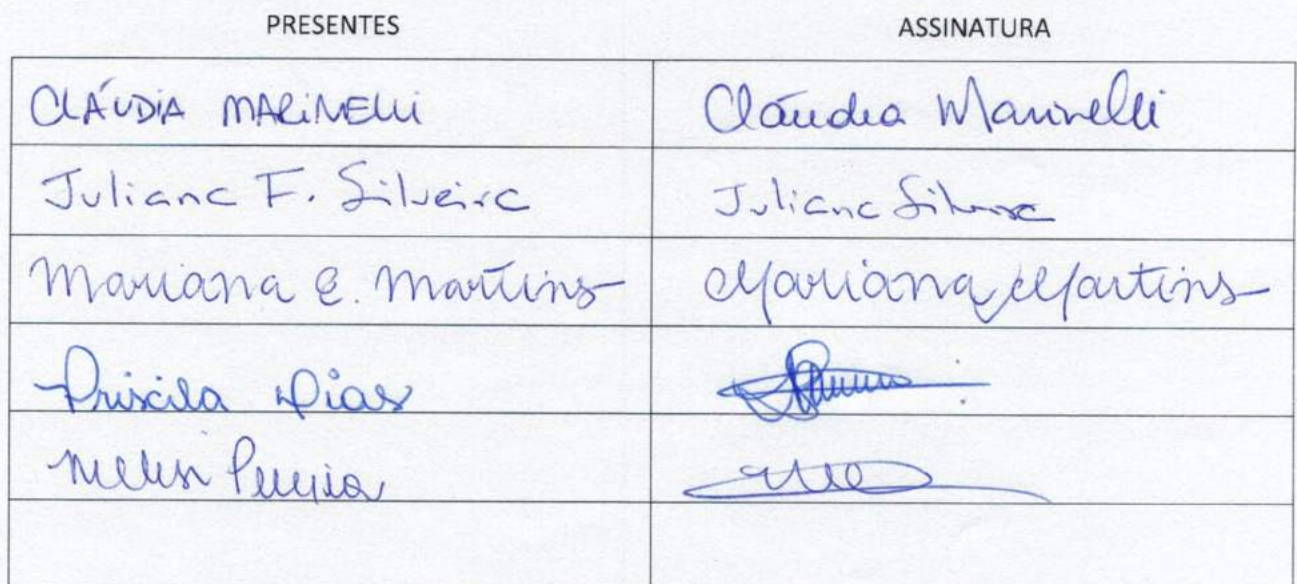 PRESENTES ASSINATURA
CLÁUDIA MARINELLI Cláudia Marinelli
Juliana F. Silveira Juliana Silveira
Mariana E. Martins Mariana Martins
Priscila Dias
Pereira